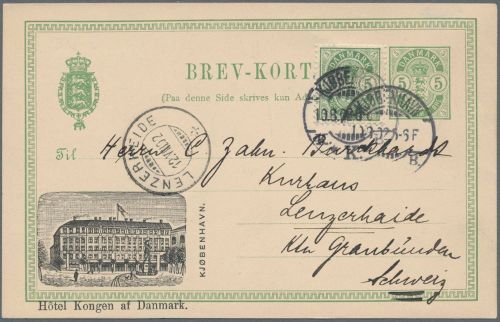 BREV-KORT.
(Paa denne Side skrives kun Ad
DANMARK
5 5
DANMARK
5 5
KJØBENHAVN
10.8.02.5-6F
K.
B.
LENZERHEIDE
12.VIII.02
Til Herrn C. Zahn-Burckhardt
Kurhaus
Lenzerhaide
Ktn Graubünden
Schweiz
KJØBENHAVN.
Hôtel Kongen af Danmark.